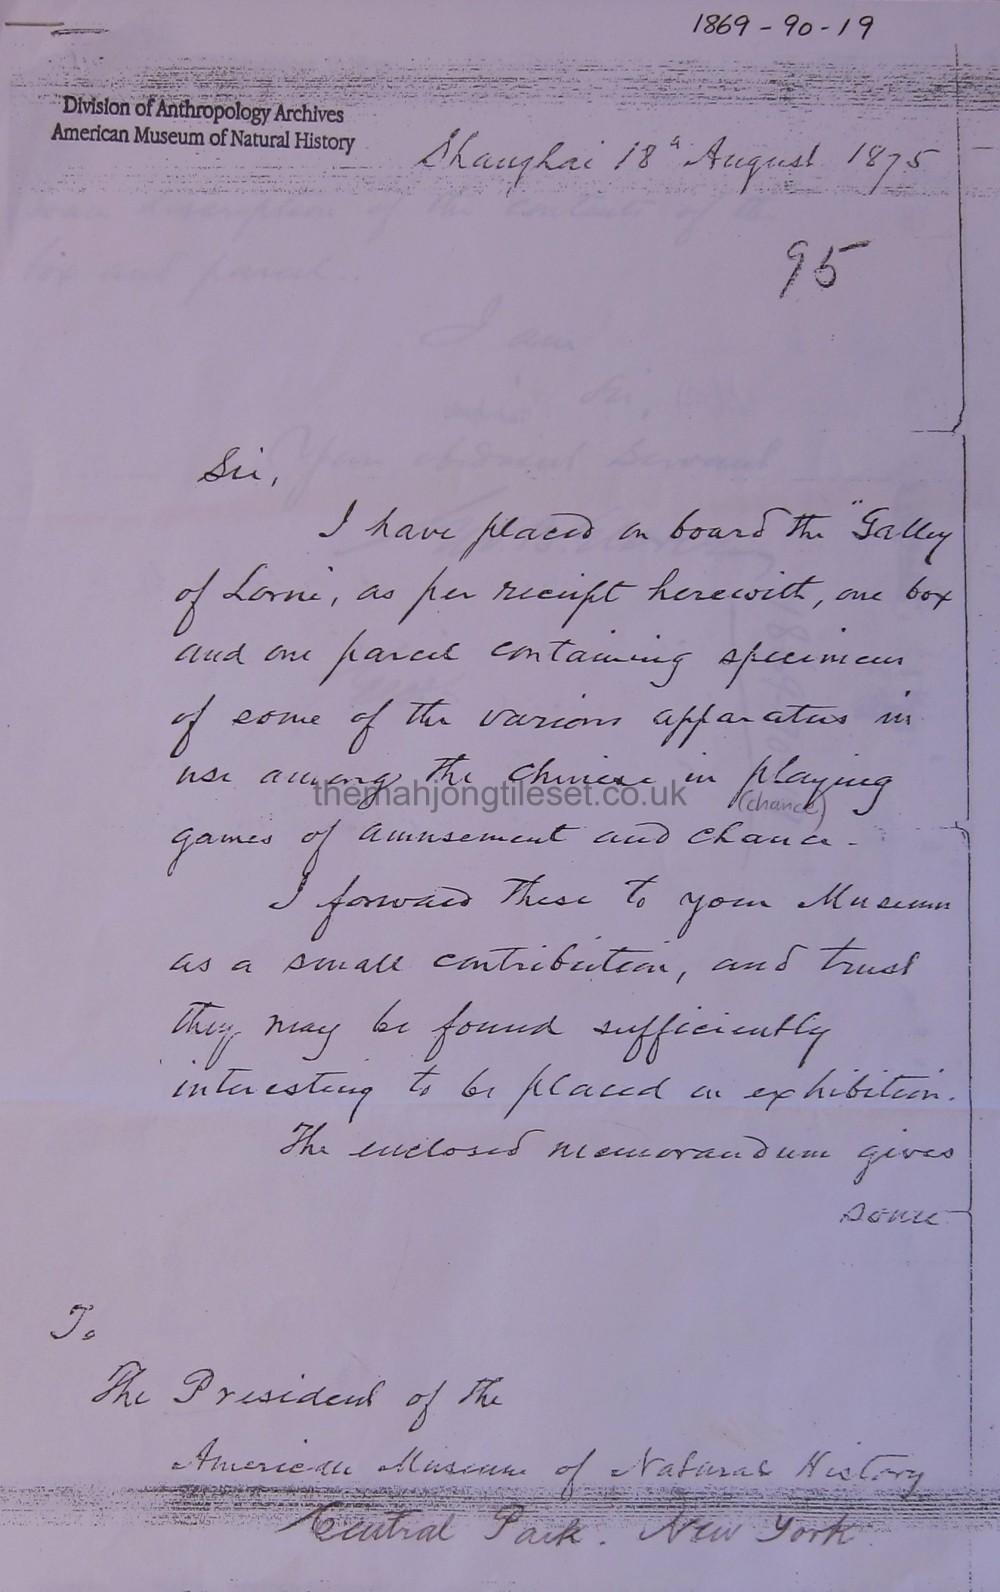 1869-90-19
Division of Anthropology Archives
American Museum of Natural History
Shanghai 18th August 1875
some description of the contents of the
box and parcel.
95
I am
Sir,
Your obedient Servant
Sir,
I have placed on board the "Galley
of Lorne", as per receipt herewith, one box
and one parcel containing specimens
of some of the various apparatus in
use among the Chinese in playing
themahjongtileset.co.uk
(chance)
games of amusement and chance.
I forward these to your Museum
as a small contribution, and trust
they may be found sufficiently
interesting to be placed on exhibition.
The enclosed memorandum gives
some
To
The President of the
American Museum of Natural History
Central Park. New York